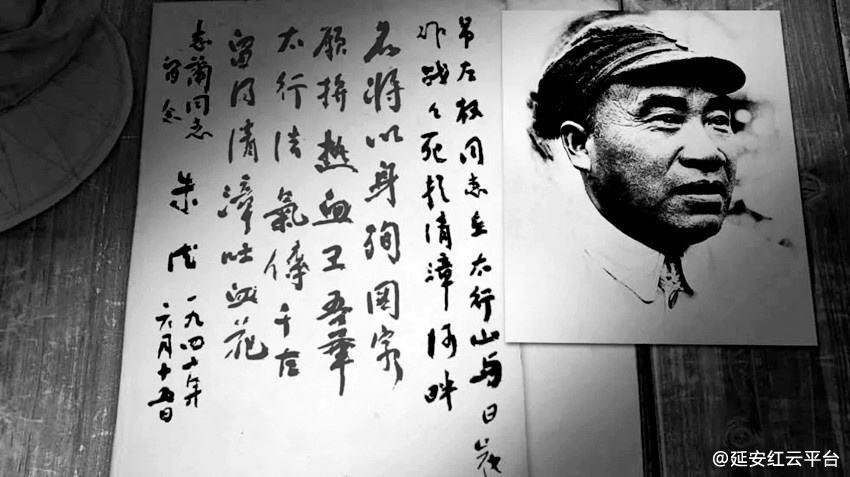 吊左权同志在太行山与日寇
作战々死於清漳河畔
名将以身殉國家
願拚熱血卫吾華
太行浩氣傳千古
留得清漳吐血花
志蘭同志
留念
朱德
一九四十年
六月十五日
@延安红云平台